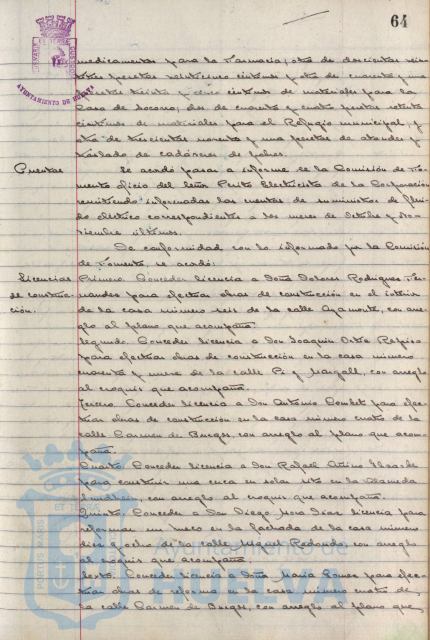 64
AYUNTAMIENTO DE HUELVA
medicamentos para la Farmacia; otra de doscientas
pesetas veinticinco céntimos y otra de cuarenta y una
pesetas treinta y cinco céntimos de materiales para la
Casa de Socorro; dos de cuarenta y cuatro pesetas setenta
céntimos de materiales para el Refugio municipal, y
otra de trescientas noventa y una pesetas de ataudes y
traslado de cadáveres de pobres.
Cuentas
Se acordó pasar a informe de la Comisión de Fo-
mento oficio del Señor Perito Electricista de la Corporación
remitiendo informadas las cuentas de suministros de flúi-
do eléctrico correspondientes a los meses de Octubre y No-
viembre últimos.
De conformidad con lo informado por la Comisión
de Fomento, se acordó:
Licencias
de construc-
ción.
Primero. Conceder licencia a Doña Dolores Rodríguez Fer-
nández para efectuar obras de construcción en el interior
de la casa número seis de la calle Ayamonte, con arre-
glo al plano que acompaña.
Segundo. Conceder licencia a Don Joaquín Ortiz Respiso
para efectuar obras de construcción en la casa número
cuarenta y nueve de la calle Pi y Margall, con arreglo
al croquis que acompaña.
Tercero. Conceder licencia a Don Antonio Gombet para efec-
tuar obras de construcción en la casa número cuatro de la
calle Carmen de Burgos, con arreglo al plano que acom-
paña.
Cuarto. Conceder licencia a Don Rafael
para construir una cerca en solar sito en la Alameda
con arreglo al croquis que acompaña.
Quinto. Concede a Don Diego Mora Díaz licencia para
reformar un hueco en la fachada de la casa número
diez y ocho de la calle Miguel Redondo con arreglo
al croquis que acompaña.
Sexto. Conceder licencia a Doña María Gómez para efec-
tuar obras de reforma en la casa número cuatro de
la calle Carmen de Burgos, con arreglo al plano que,
Ayuntamiento de
HUELVA